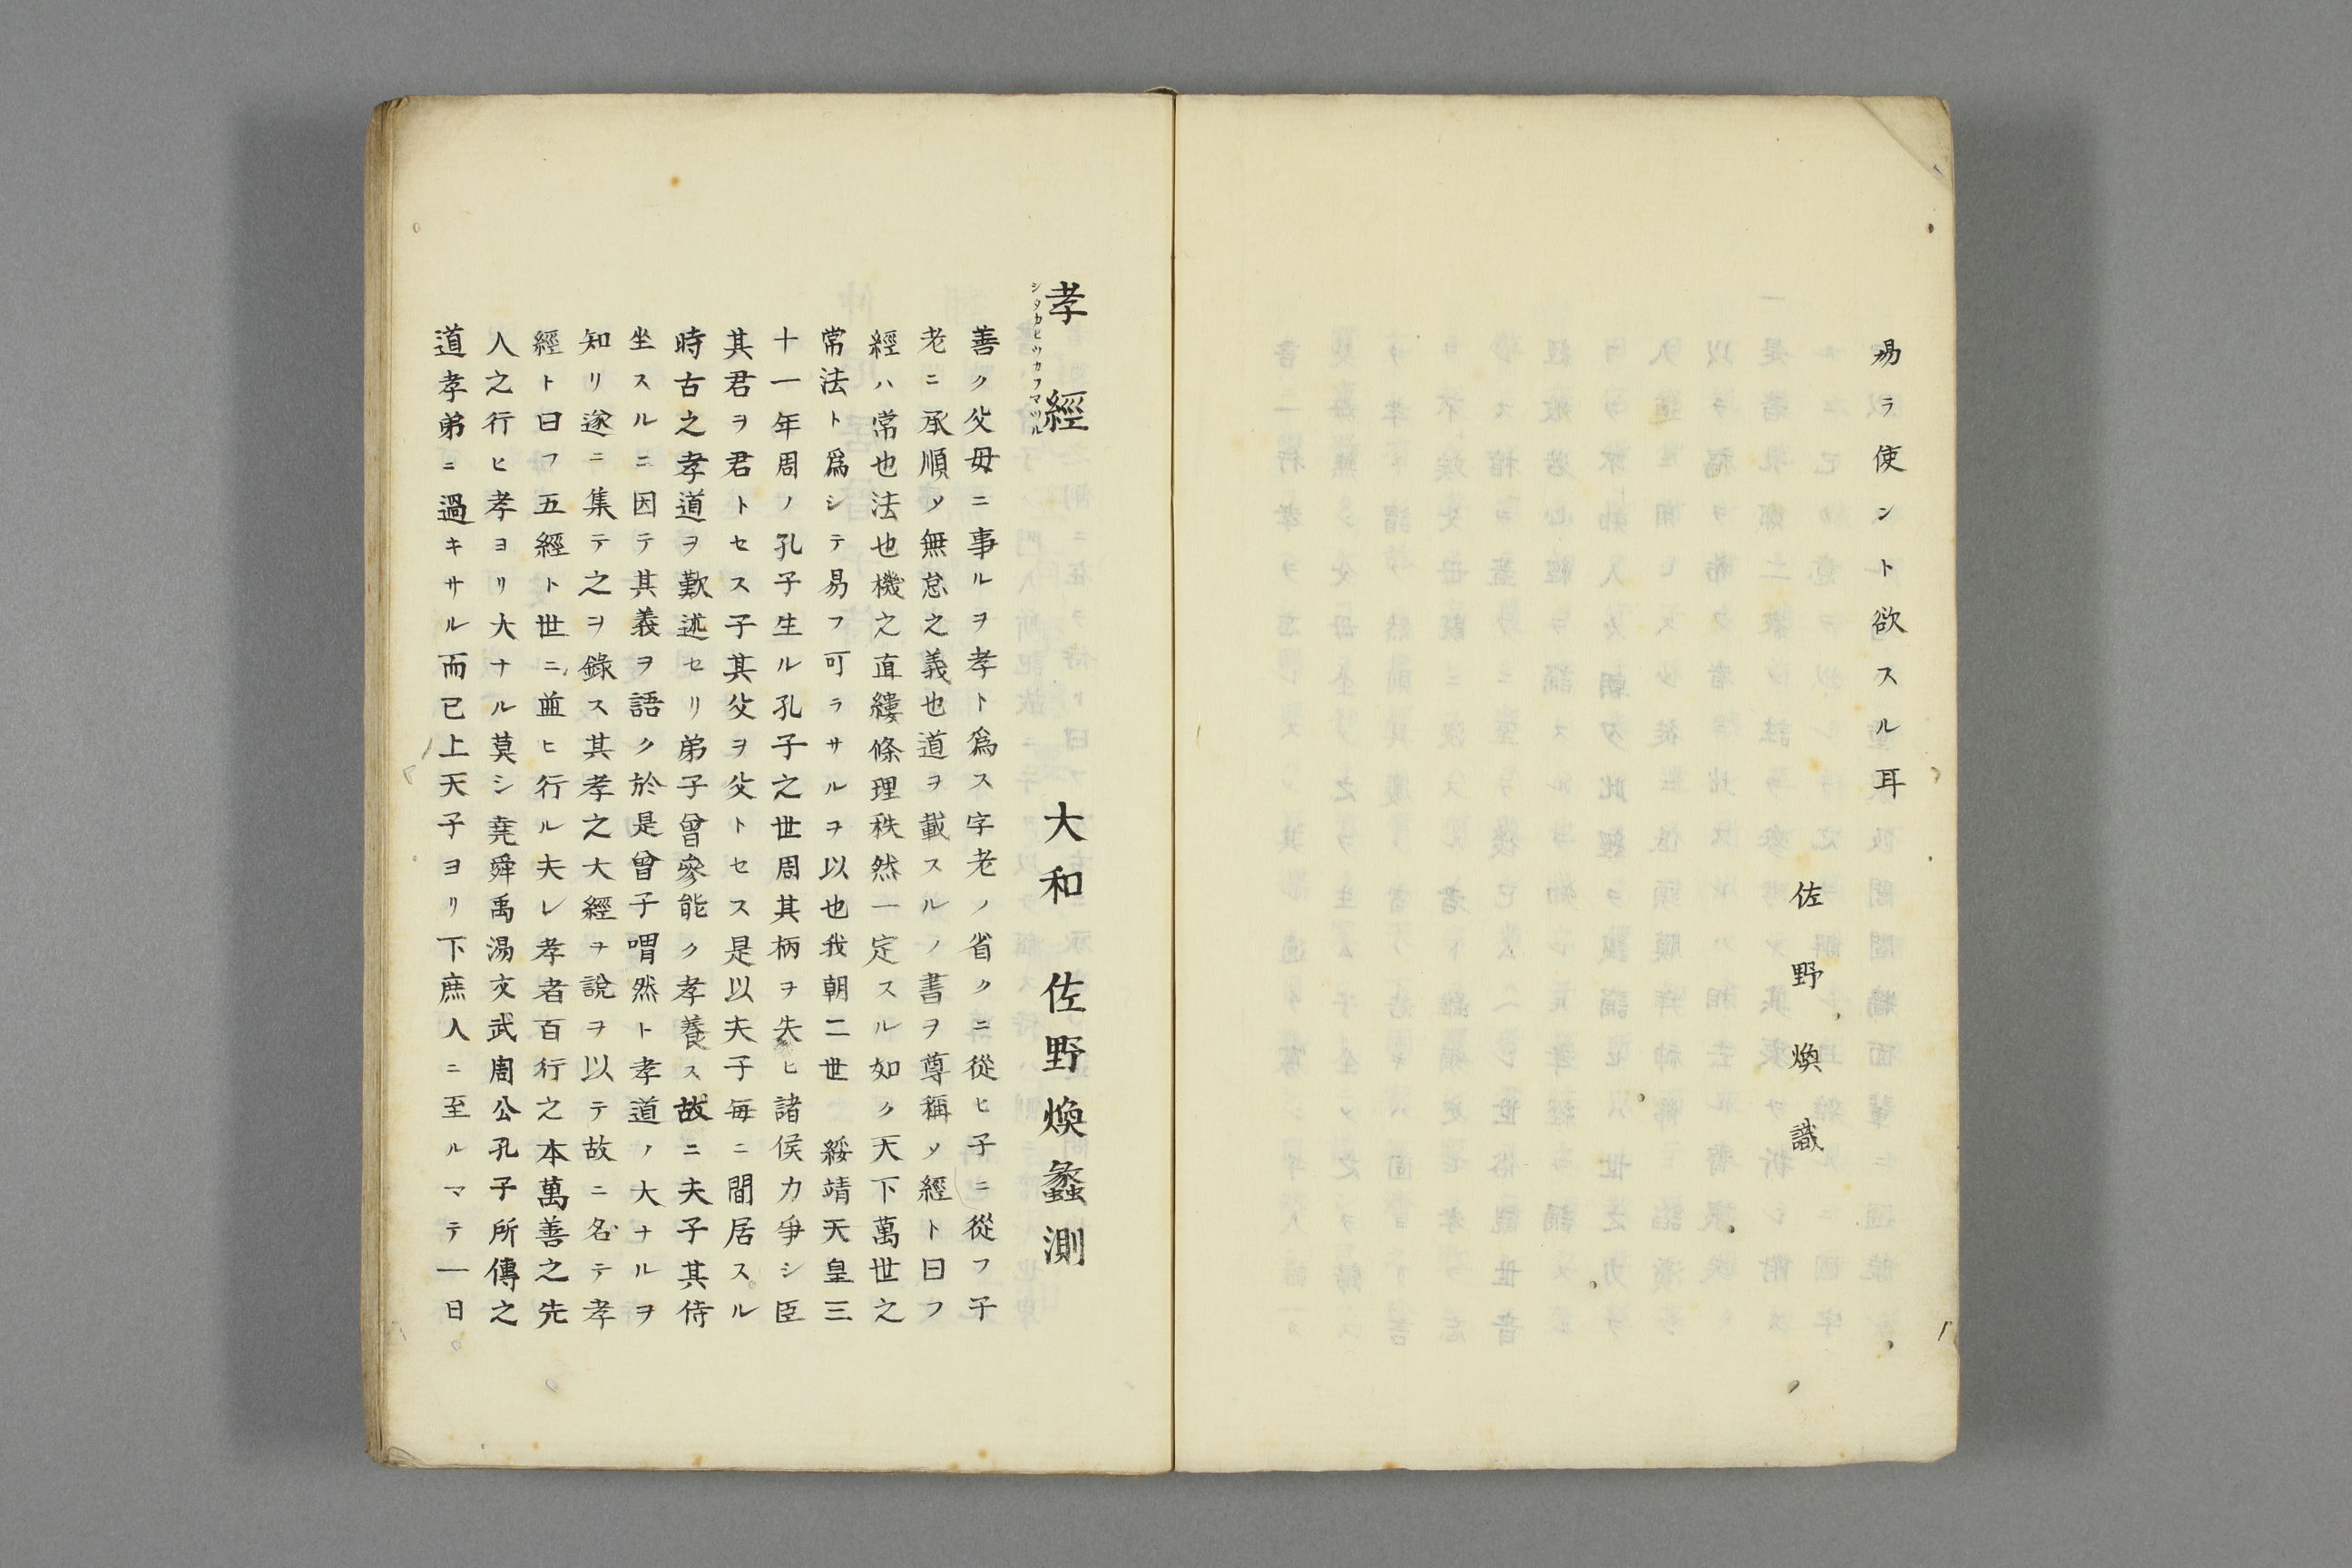 易ラ使ント欲スル耳
佐野煥識
孝經 大和 佐野煥蠡測
シタカヒツカフマツル
善ク父毋ニ事ルヲ孝ト爲ス字老ノ省クニ從ヒ子ニ從フ子
老ニ承順〆無怠之義也道ヲ載スルノ書ヲ尊稱〆經ト曰フ
經ハ常也法也機之直縷條理秩然一定スル如ク天下萬世之
常法ト爲シテ易フ可ラサルヲ以也我朝二世 綏靖天皇三
十一年周ノ孔子生ル孔子之世周其柄ヲ失ヒ諸侯力爭シ臣
其君ヲ君トセス子其父ヲ父トセス是以夫子毎ニ間居スル
時古之孝道ヲ歎述セリ弟子曾參能ク孝養ス故ニ夫子其侍
坐スルニ因テ其義ヲ語ク於是曾子喟然ト孝道ノ大ナルヲ
知リ遂ニ集テ之ヲ錄ス其孝之大經ヲ說ヲ以テ故ニ名テ孝
經ト曰フ五經ト世ニ並ヒ行ル夫レ孝者百行之本萬善之先
人之行ヒ孝ヨリ大ナル莫シ堯舜禹湯文武周公孔子所傳之
道孝弟ニ過キサル而已上天子ヨリ下庶人ニ至ルマテ一日